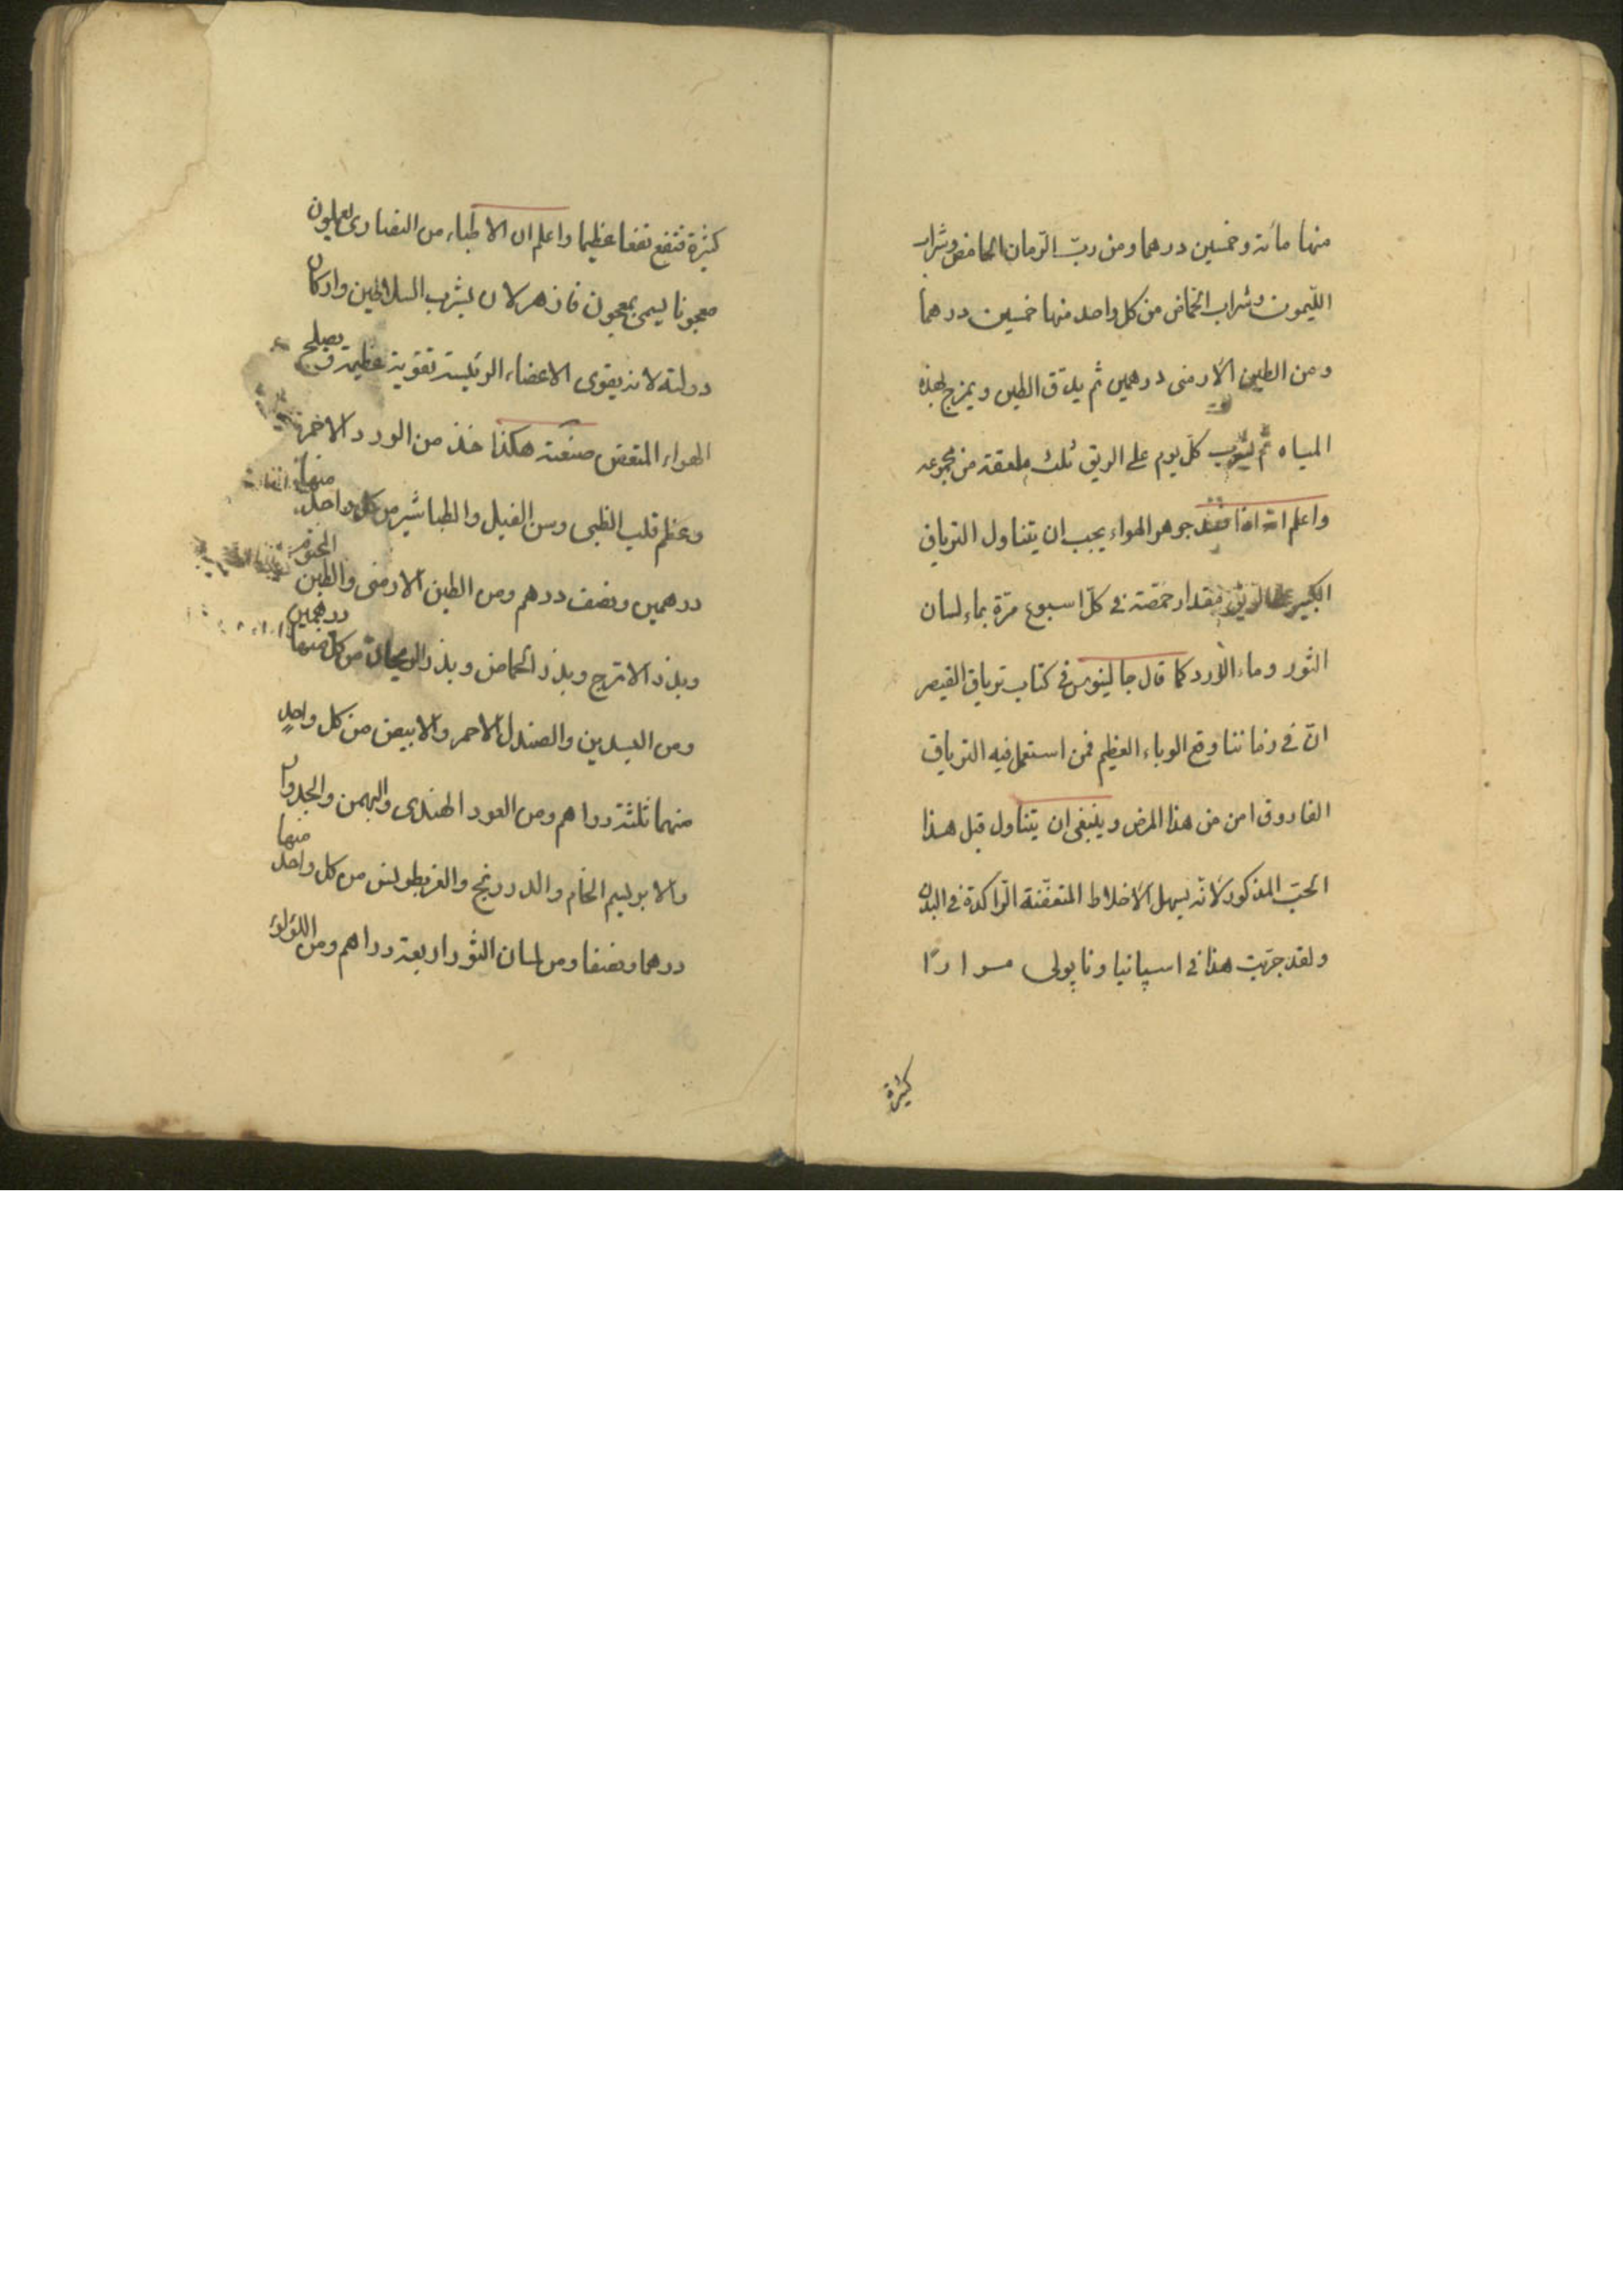 منها مائة وخمسين درهما ومن ربّ الرّمان الحامض وشراب
اللّيمون وشراب الحماض من كل واحد منها خمسين درهما
ومن الطين الأرمنى درهمين ثم يدقّ الطين ويمزج بهذه
المياه ثم يشرب كلّ يوم على الريق ثلث ملعقة من مجموعه
واعلم انه اذا فسد جوهر الهواء يجب ان يتناول الترياق
الكبير على الريق بمقدار حمّصة فى كلّ اسبوع مرّة بماء لسان
الثور وماء الورد كما قال جالينوس فى كتاب ترياق القيصر
انّ فى زماننا وقع الوباء العظيم فمن استعمل فيه الترياق
الفاروق امن من هذا المرض وينبغى ان يتناول قبل هذا
الحبّ المذكور لانّه يسهل الأخلاط المتعفّنة الرّاكدة فى البدن
ولقد جرّبت هذا فى اسپانيا وناپولى مرارًا
كثيرة
كثيرة فنفع نفعا عظيما واعلم ان الاطباء من النصارى يعملون
معجونا يسمى بمعجون فاذهر لان يشرب السلاطين واركان
دولته لانه يقوى الاعضاء الرئيسة تقوية عظيمة و يصلح
الهواء المتعفن صنعته هكذا خذ من الورد الاحمر
وعظم قلب الظبى وسن الفيل والطباشير من كل واحد منها
درهمين ونصف درهم ومن الطين الارمنى والطين المختوم
وبذر الاترج وبذر الحماض وبذر الريحان من كل منها درهمين
ومن البسدين والصندل الاحمر والابيض من كل واحدٍ
منهما ثلثة دراهم ومن العود الهندى والبهمن والجدوار
والابريسم الخام والدرونج من كل واحد منها
درهما ونصفا ومن لسان الثور اربعة دراهم ومن اللؤلؤ